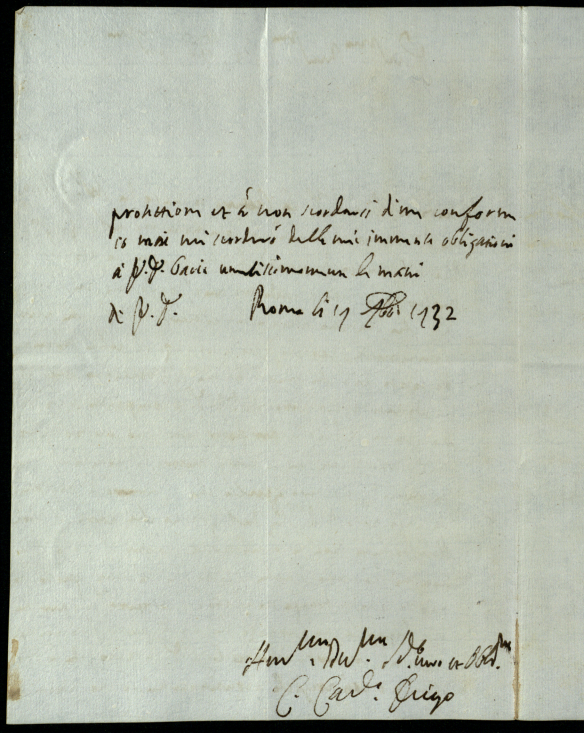 protettione et à non scordarsi di me conforme
io mai mi scorderò delle mie immense obligationi
à V.S. bacio umilissimamente le mani
di V.S. Roma li 1732
Hum.mo Dev.mo et Obl.mo
C. Card.